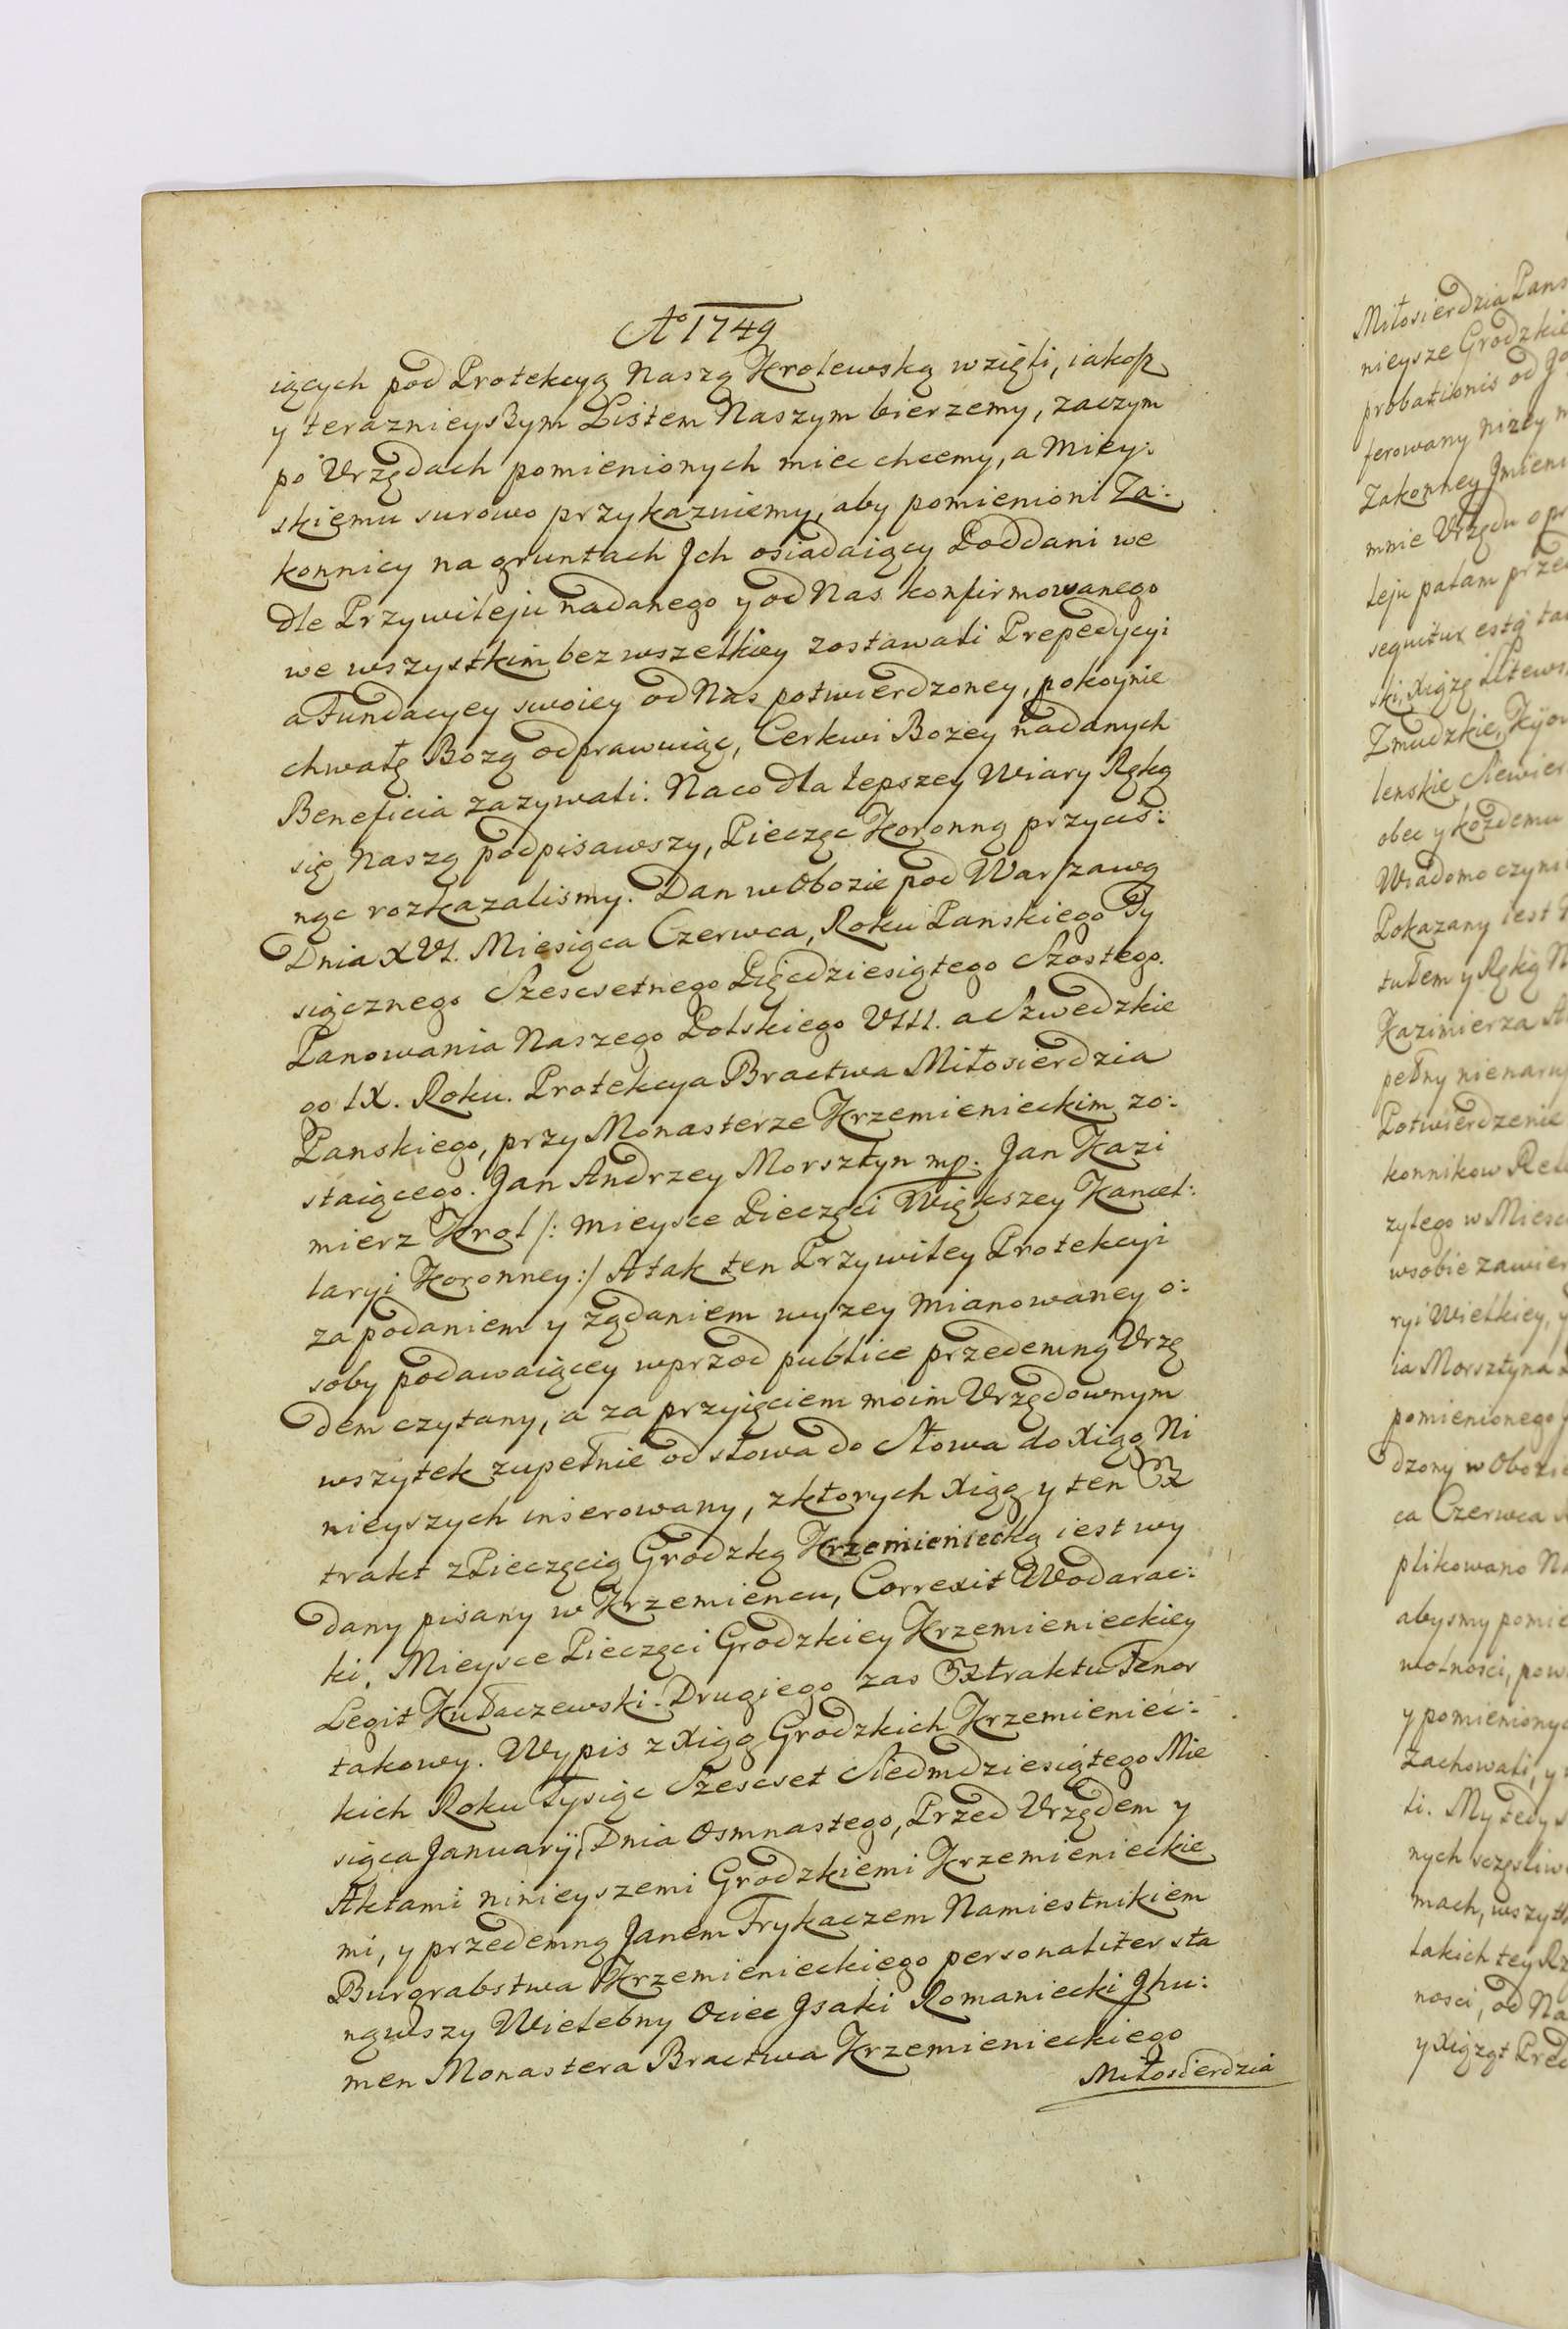 Ao 1749
iących pod Protekcyą Naszą Krolewską wzięli, iakosz
y teraznieyszym Listem Naszym bierzemy, zaczym
po Vrzędach pomienionych miec chcemy, a Miey:
skięmu surowo przykazuiemy, aby pomienioni Za:
konnicy na gruntach Jch osiadaiący Poddani we
dle Przywileju nadanego y od Nas konfirmowanego
we wszystkim bez wszelkiey zostawali Prepedycyi
a Fundacyey swoiey od Nas potwierdzoney, pokoynie
chwałę Bozą odprawuiąc, Cerkwi Bozey nadanych
Beneficia zazywali. Na co dla lepszey Wiary Ręką
się Naszą podpisawszy, Pieczęc Koronną przycis:
nąc rozkazalismy. Dan w Obozie pod Warszawą
Dnia XVI. Miesiąca Czerwca, Roku Panskiego Ty
siącznego Szescsetnego Pięcdziesiątego Szostego.
Panowania Naszego Polskiego VIII. a Szwedzkie
go IX. Roku. Protekcya Bractwa Miłosierdzia
Panskiego, przy Monasterze Krzemienieckim zo:
staiącego. Jan Andrzey Morsztyn mp. Jan Kazi
mierz Krol /: mieysce Pieczęci Większey Kancel:
laryi Koronney :/ A tak ten Przywiley Protekcyi
za podaniem y ządaniem wyzey mianowaney o:
soby podawaiącey wprzod publice przedemną Vrzę
dem czytany, a za przyięciem moim Vrzędownym
wszytek zupełnie od słowa do słowa do Xiąg Ni
nieyszych inserowany, z ktorych Xiąg y ten Ex
trakt z Pieczęcią Grodzką Krzemieniecką iest wy
dany pisany w Krzemiencu, Correxit Wodarac:
ki. Mieysce Pieczęci Grodzkiey Krzemienieckiey
Legit Kułaczewski. Drugiego zas Extraktu Tenor
takowy. Wypis z Xiąg Grodzkich Krzemieniec:
kich Roku Tysiąc Szescset Siedmdziesiątego Mie
siąca Januarÿ, Dnia Osmnastego, Przed Vrzędem y
Aktami ninieyszemi Grodzkiemi Krzemienieckie
mi, y przedemną Janem Trykaczem Namiestnikiem
Burgrabstwa Krzemienieckiego personaliter sta
nąwszy Wielebny Ociec Jsaki Romaniecki Jhu:
men Monastera Bractwa Krzemienieckiego
Miłosierdzia
Miłosierdzia Pans
nieysze Grodzkie
probationis od
ferowany nizey
Zakonney Jmieni
mnie Vrzędu o pr
leju palam prze
sequitur estq ta
ski, Xiąze Litews
Zmudzkie, Kijow
lenskie Siewier
obec y kozdemu
Wiadomo czyni
Pokazany iest
tułem y Ręką N
Kazimierza
pełny nienaru
Potwierdzenie
konnikow Rel
zytego w Miesc
wsobie zawier
ryi Wielkiey, y
ia Morsztyna
pomienionego
dzony w Obozie
ca Czerwca
plikowano Na
abysmy pomie
wolnosci, pow
y pomieniony
zachowali, y
li. My tedy
nych sczęsliw
mach, wszytk
takich tey Rz
nosci, od Na
y Xiąząt Pred